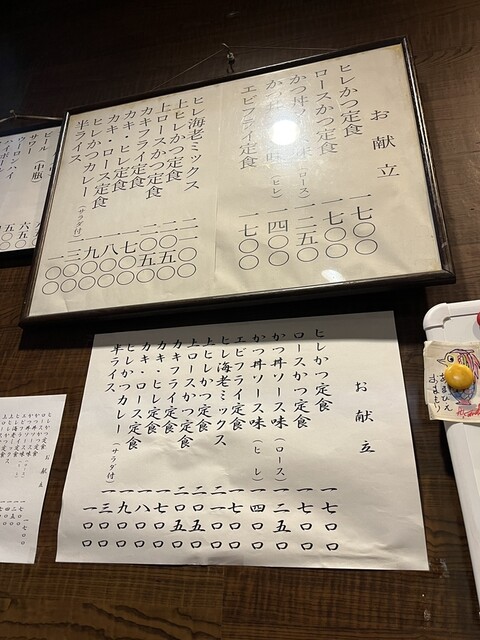 お献立
ヒレかつ定食 一七〇〇
ロースかつ定食 一七〇〇
かつ丼ソース味（ロース） 一二五〇
かつ丼 味（ヒレ） 一四〇〇
エビフライ定食 一七〇〇
ヒレ海老ミックス 二一〇〇
上ヒレかつ定食 二〇五〇
上ロースかつ定食 二〇五〇
カキフライ定食 一七〇〇
カキ・ヒレ定食 一八〇〇
カキ・ロース定食 一九〇〇
ヒレかつカレー（サラダ付） 一三〇〇
半ライス 一〇〇
ビール（中瓶）
サワー
ウーロンハイ
ハイボール
お献立
ヒレかつ定食 一七〇〇
ロースかつ定食 一七〇〇
かつ丼ソース味（ロース） 一二五〇
かつ丼ソース味（ヒレ） 一四〇〇
エビフライ定食 一七〇〇
ヒレ海老ミックス 二一〇〇
上ヒレかつ定食 二〇五〇
上ロースかつ定食 二〇五〇
カキフライ定食 一七〇〇
カキ・ヒレ定食 一八〇〇
カキ・ロース定食 一九〇〇
ヒレかつカレー（サラダ付） 一三〇〇
半ライス 一〇〇
お献立
あまびえ
おまもり